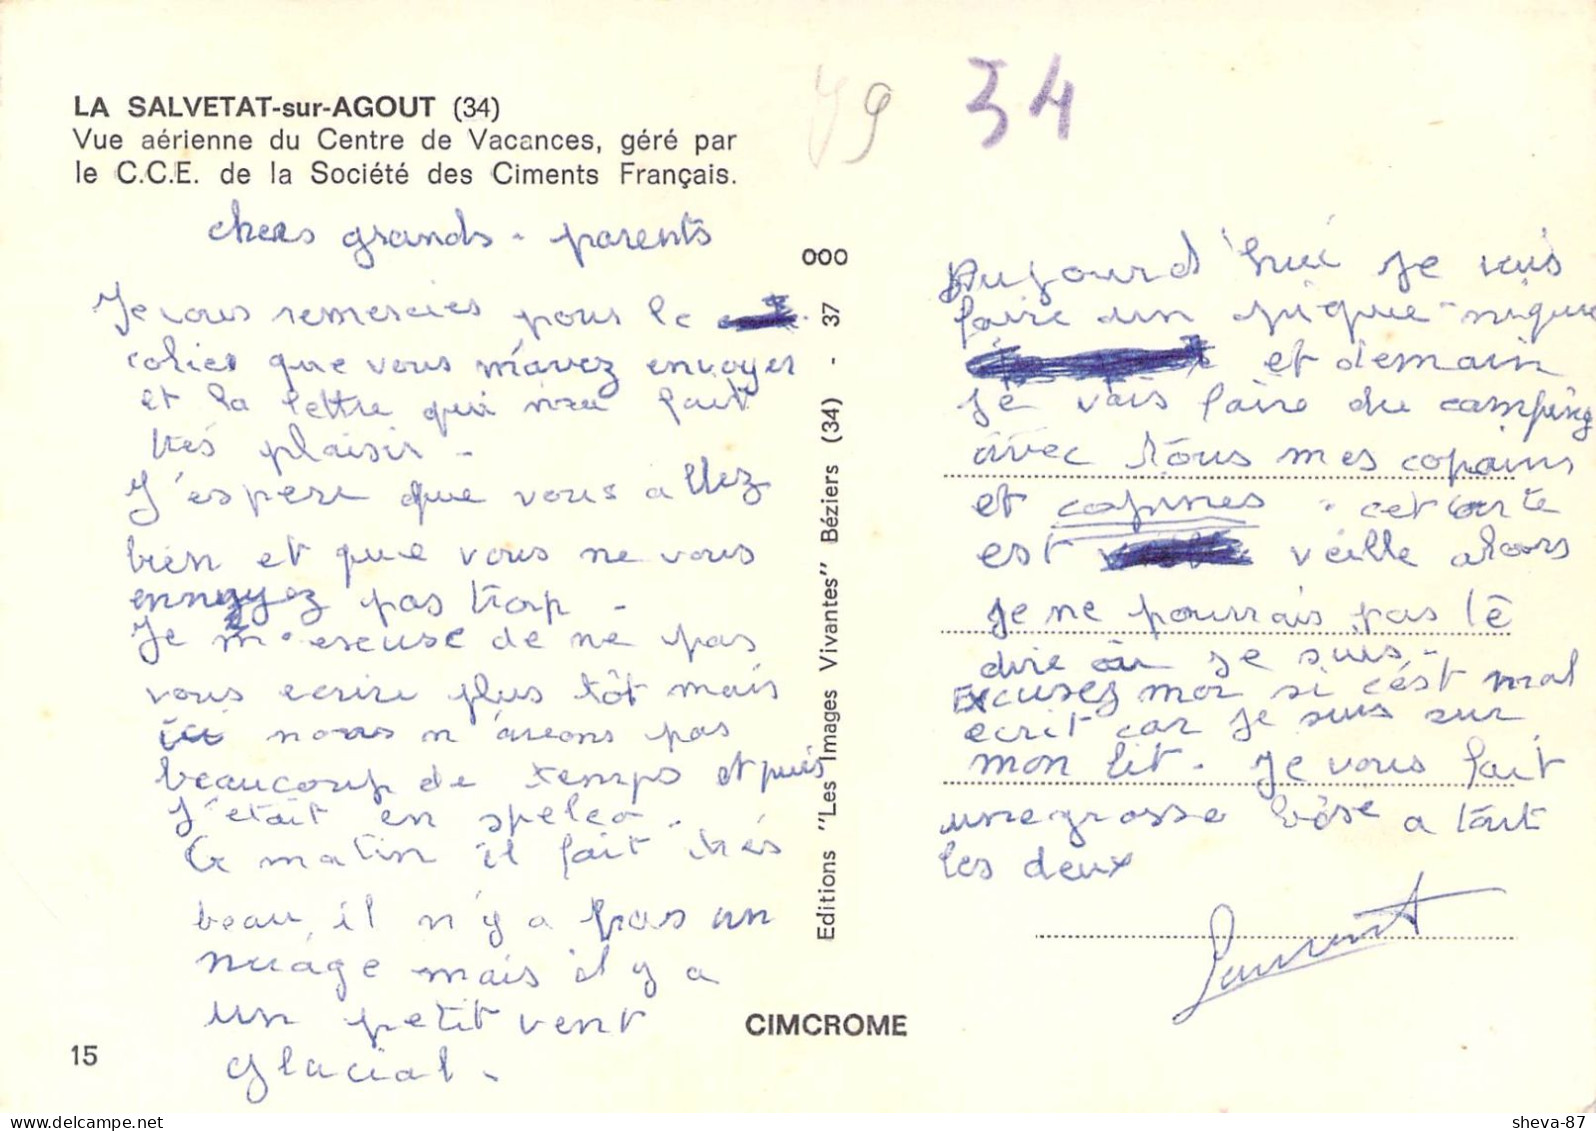 LA SALVETAT-sur-AGOUT (34)
Vue aérienne du Centre de Vacances, géré par
le C.C.E. de la Société des Ciments Français.
79 34
chers grands-parents
Je vous remercies pour le
colier que vous m'avez envoyer
et la lettre qui m'a fait
très plaisir -
J'espere que vous allez
bien et que vous ne vous
ennuyez pas trop -
Je m'escuse de ne pas
vous ecrire plus tôt mais
ici nous n'avons pas
beaucoup de temps et puis
j'était en speleo.
Ce matin il fait très
beau, il n'y a pas un
nuage mais il y a
un petit vent
glacial.
15
000
Editions "Les Images Vivantes" Béziers (34) - 37
CIMCROME
Aujourd'hui je vais
faire un pique-nique
et demain
je vais faire du camping
avec tous mes copains
et copines. cet carte
est veille alors
je ne pourrais pas te
dire où je suis.
Excusez moi si c'est mal
ecrit car je suis sur
mon lit. Je vous fait
une grosse bise a tout
les deux
Laurent
sheva-87